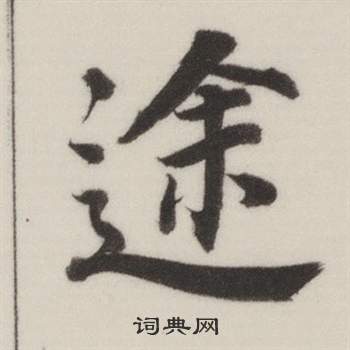 途
词典网